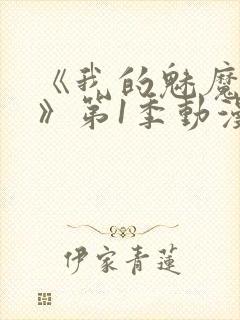 《我的魅魔
》第1季動漫
伊家青蓮